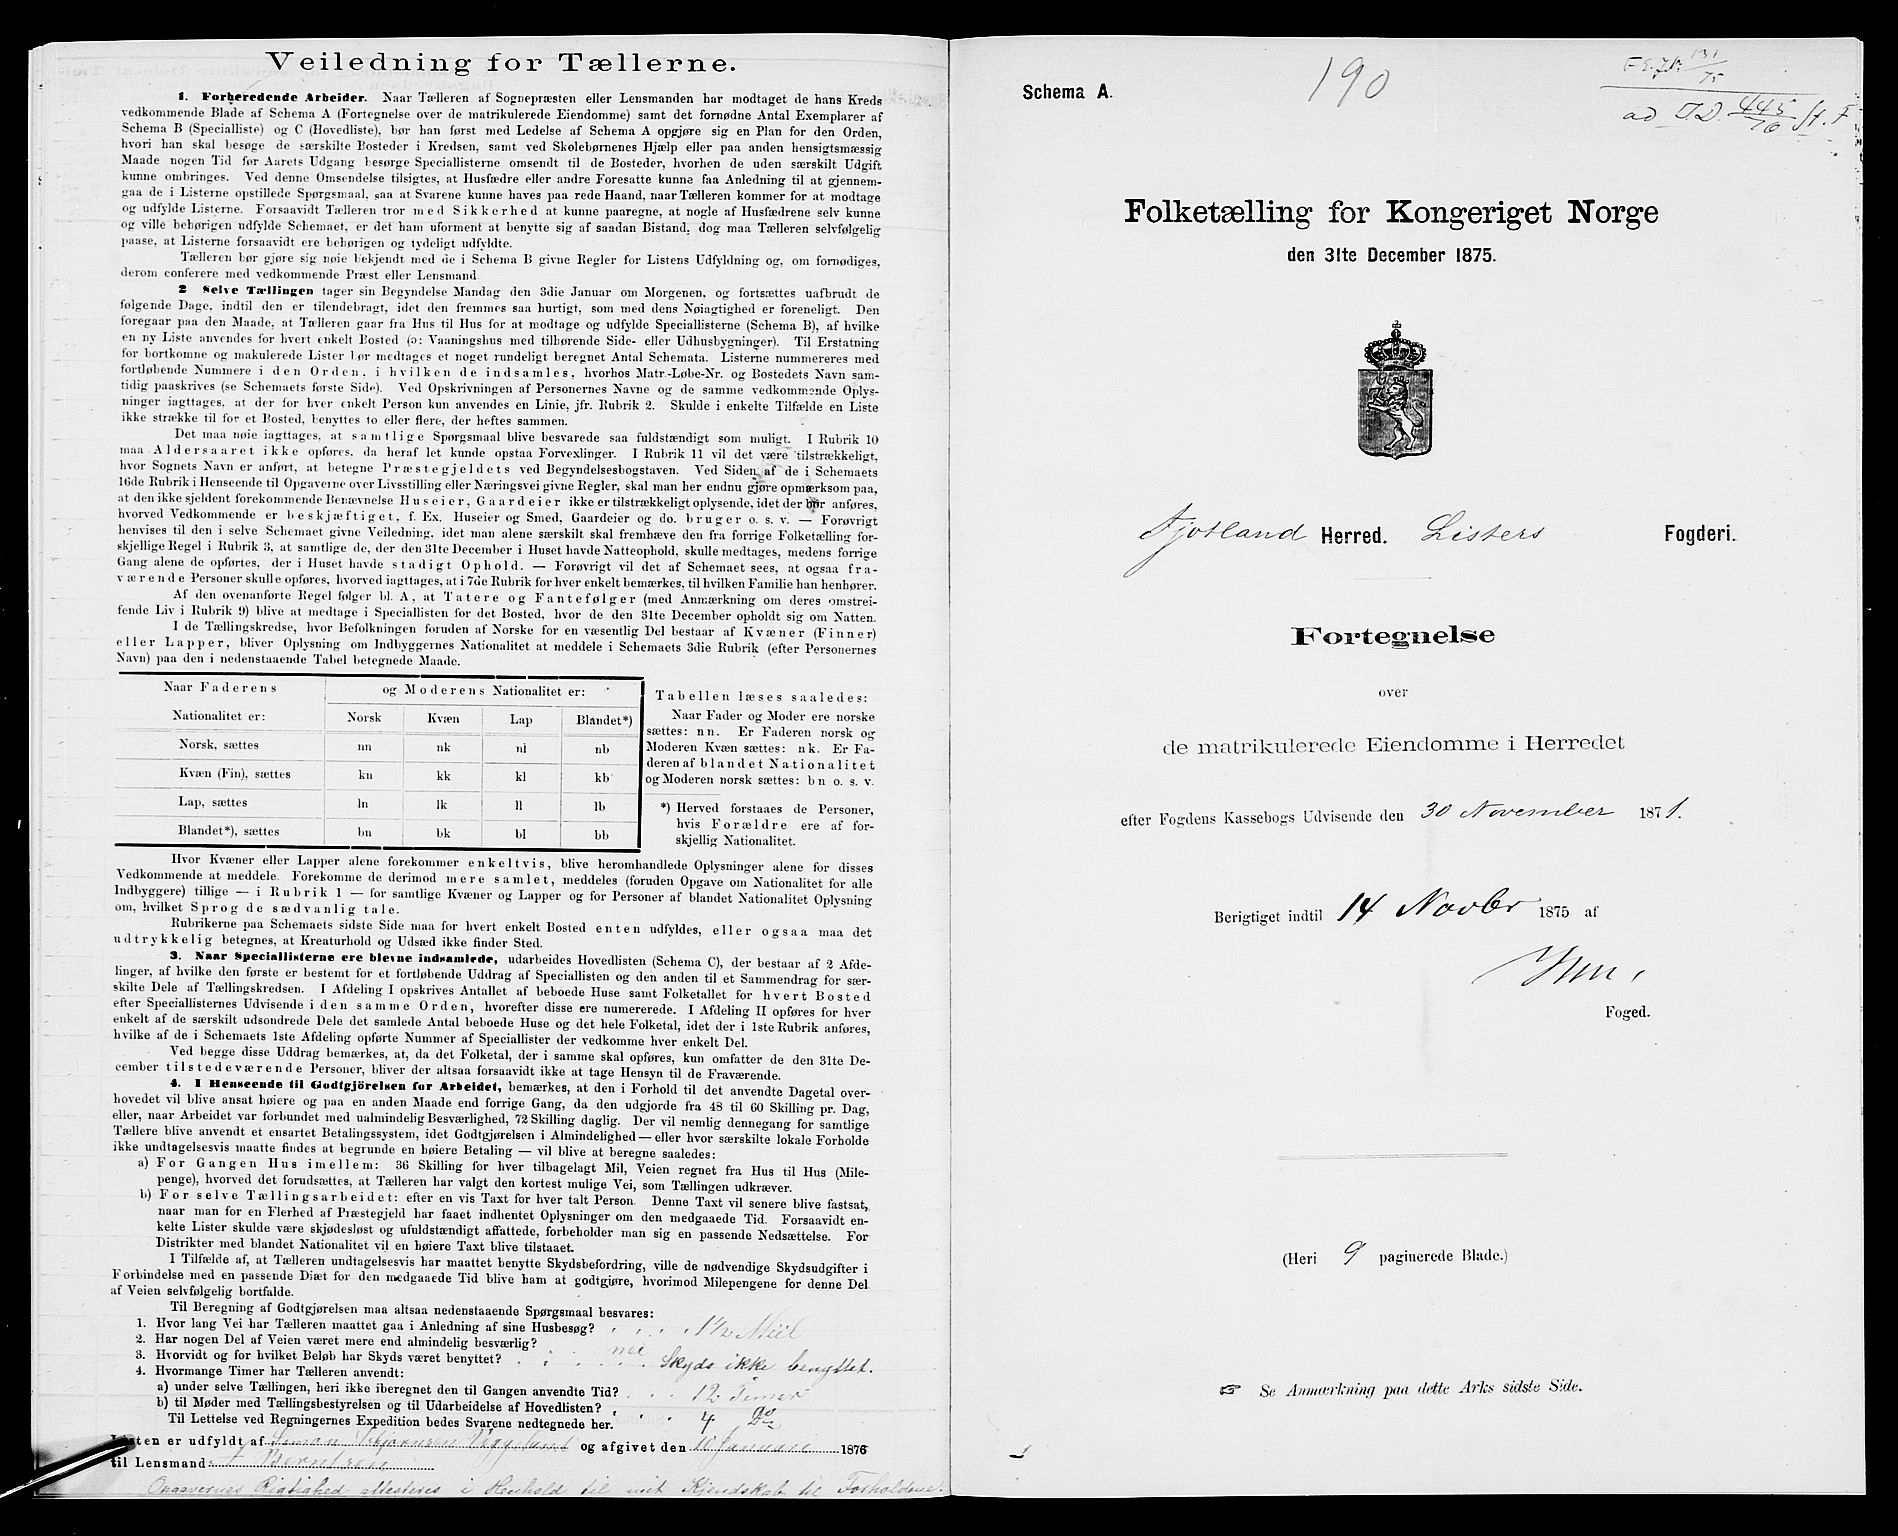 Veiledning for Tællerne.
1. Forberedende Arbeider. Naar Tælleren af Sognepræsten eller Lensmanden har modtaget de hans Kreds
vedkommende Blade af Schema A (Fortegnelse over de matrikulerede Eiendomme) samt det fornødne Antal Exemplarer af
Schema B (Specialliste) og C (Hovedliste), bør han først med Ledelse af Schema A opgjøre sig en Plan for den Orden,
hvori han skal besøge de særskilte Bosteder i Kredsen, samt ved Skolebørnenes Hjælp eller paa anden hensigtsmæssig
Maade nogen Tid før Aarets Udgang besørge Speciallisterne omsendt til de Bosteder, hvorhen de uden særskilt Udgift
kunne ombringes. Ved denne Omsendelse tilsigtes, at Husfædre eller andre Foresatte kunne faa Anledning til at gjennem-
gaa de i Listerne opstillede Spørgsmaal, saa at Svarene kunne haves paa rede Haand, naar Tælleren kommer for at modtage
og udfylde Listerne. Forsaavidt Tælleren tror med Sikkerhed at kunne paaregne, at nogle af Husfædrene selv kunne
og ville behørigen udfylde Schemaet, er det ham uforment at benytte sig af saadan Bistand, dog maa Tælleren selvfølgelig
paase, at Listerne forsaavidt ere behørigen og tydeligt udfyldte.
Tælleren bør gjøre sig nøie bekjendt med de i Schema B givne Regler for Listens Udfyldning og, om fornødiges,
derom conferere med vedkommende Præst eller Lensmand
2 Selve Tællingen tager sin Begyndelse Mandag den 3die Januar om Morgenen, og fortsættes uafbrudt de
følgende Dage, indtil den er tilendebragt, idet den fremmes saa hurtigt, som med dens Nøiagtighed er foreneligt. Den
foregaar paa den Maade, at Tælleren gaar fra Hus til Hus for at modtage og udfylde Speciallisterne (Schema B), af hvilke
en ny Liste anvendes for hvert enkelt Bosted (ɔ: Vaaningshus med tilhørende Side- eller Udhusbygninger). Til Erstatning
for bortkomne og makulerede Lister bør medtages et noget rundeligt beregnet Antal Schemata. Listerne nummereres med
fortløbende Nummere i den Orden, i hvilken de indsamles, hvorhos Matr.-Løbe-Nr. og Bostedets Navn sam-
tidig paaskrives (se Schemaets første Side). Ved Opskrivningen af Personernes Navne og de samme vedkommende Oplys-
ninger iagttages, at der for hver enkelt Person kun anvendes en Linie, jfr. Rubrik 2. Skulde i enkelte Tilfælde en Liste
ikke strække til for et Bosted, benyttes to eller flere, der heftes sammen.
Det maa nøie iagttages, at samtlige Spørgsmaal blive besvarede saa fuldstændigt som muligt. I Rubrik 10
maa Aldersaaret ikke opføres, da heraf let kunde opstaa Forvexlinger. I Rubrik 11 vil det være tilstrækkeligt,
hvor Sognets Navn er anført, at betegne Præstegjeldets ved Begyndelsesbogstaven. Ved Siden af de i Schemaets
16de Rubrik i Henseende til Opgaverne over Livsstilling eller Næringsvei givne Regler, skal man her endnu gjøre opmærksom paa,
at den ikke sjeldent forekommende Benævnelse Huseier, Gaardeier ikke er tilstrækkeligt oplysende, idet der bør anføres,
hvorved Vedkommende er beskjæftiget, f. Ex. Huseier og Smed, Gaardeier og do. bruger o. s. v. — Forøvrigt
henvises til den i selve Schemaet givne Veiledning, idet man alene særskilt skal fremhæve den fra forrige Folketælling for-
skjellige Regel i Rubrik 3, at samtlige de, der den 31te December i Huset havde Natteophold, skulle medtages, medens forrige
Gang alene de opførtes, der i Huset havde stadigt Ophold. — Forøvrigt vil det af Schemaet sees, at ogsaa fra-
værende Personer skulle opføres, hvorved iagttages, at i 7de Rubrik for hver enkelt bemærkes, til hvilken Familie han henhører.
Af den ovenanførte Regel følger bl. A, at Tatere og Fantefølger (med Anmærkning om deres omstrei-
fende Liv i Rubrik 9) blive at medtage i Speciallisten for det Bosted, hvor de den 31te December opholdt sig om Natten.
I de Tællingskredse, hvor Befolkningen foruden af Norske for en væsentlig Del bestaar af Kvæner (Finner)
eller Lapper, bliver Oplysning om Indbyggernes Nationalitet at meddele i Schemaets 3die Rubrik (efter Personernes
Navn) paa den i nedenstaaende Tabel betegnede Maade.
Naar Faderens og Moderens Nationalitet er:
Nationalitet er: Norsk Kvæn Lap Blandet*)
Norsk, sættes nn nk nl nb
Kvæn (Fin), sættes kn kk kl kb
Lap, sættes ln lk ll lb
Blandet*), sættes bn bk bl bb
Tabellen læses saaledes:
Naar Fader og Moder ere norske
sættes: nn. Er Faderen norsk og
Moderen Kvæn sættes: nk. Er Fa-
deren af blandet Nationalitet
og Moderen norsk sættes: bn o. s. v.
*) Herved forstaaes de Personer,
hvis Forældre ere af for-
skjellig Nationalitet.
Hvor Kvæner eller Lapper alene forekommer enkeltvis, blive heromhandlede Oplysninger alene for disses
Vedkommende at meddele. Forekomme de derimod mere samlet, meddeles (foruden Opgave om Nationalitet for alle
Indbyggere) tillige — i Rubrik 1 — for samtlige Kvæner og Lapper og for Personer af blandet Nationalitet Oplysning
om, hvilket Sprog de sædvanlig tale.
Rubrikerne paa Schemaets sidste Side maa for hvert enkelt Bosted enten udfyldes, eller ogsaa maa det
udtrykkelig betegnes, at Kreaturhold og Udsæd ikke finder Sted.
3. Naar Speciallisterne ere blevne indsamlede, udarbeides Hovedlisten (Schema C), der bestaar af 2 Afde-
linger, af hvilke den første er bestemt for et fortløbende Uddrag af Speciallisten og den anden til et Sammendrag for sær-
skilte Dele af Tællingskredsen. I Afdeling I opskrives Antallet af beboede Huse samt Folketallet for hvert Bosted
efter Speciallisternes Udvisende i den samme Orden, hvorefter disse ere numererede. I Afdeling II opføres for hver
enkelt af de særskilt udsondrede Dele det samlede Antal beboede Huse og det hele Folketal, idet der i 1ste Rubrik anføres,
hvilke af de i Schemaets 1ste Afdeling opførte Nummer af Speciallister der vedkomme hver enkelt Del.
Ved begge disse Uddrag bemærkes, at, da det Folketal, der i samme skal opføres, kun omfatter de den 31te De-
cember tilstedeværende Personer, bliver der altsaa forsaavidt ikke at tage Hensyn til de Fraværende.
4. I Henseende til Godtgjörelsen for Arbeidet, bemærkes, at den i Forhold til det anvendte Dagetal over-
hovedet vil blive ansat høiere og paa en anden Maade end forrige Gang, da den udgjorde fra 48 til 60 Skilling pr. Dag,
eller, naar Arbeidet var forbundet med ualmindelig Besværlighed, 72 Skilling daglig. Der vil nemlig dennegang for samtlige
Tællere blive anvendt et ensartet Betalingssystem, idet Godtgjørelsen i Almindelighed — eller hvor særskilte lokale Forholde
ikke undtagelsesvis maatte findes at begrunde en høiere Betaling — vil blive at beregne saaledes:
a) For Gangen Hus imellem: 36 Skilling for hver tilbagelagt Mil, Veien regnet fra Hus til Hus (Mile-
penge), hvorved det forudsættes, at Tælleren har valgt den kortest mulige Vei, som Tællingen udkræver.
b) For selve Tællingsarbeidet: efter en vis Taxt for hver talt Person. Denne Taxt vil senere blive fastsat,
naar man for en Flerhed af Præstegjeld har faaet indhentet Oplysninger om den medgaaede Tid. Forsaavidt en-
kelte Lister skulde være skjødesløst og ufuldstændigt affattede, forbeholder man sig en passende Nedsættelse. For
Distrikter med blandet Nationalitet vil en høiere Taxt blive tilstaaet.
I Tilfælde af, at Tælleren undtagelsesvis har maattet benytte Skydsbefordring, ville de nødvendige Skydsudgifter i
Forbindelse med en passende Diæt for den medgaaede Tid blive ham at godtgjøre, hvorimod Milepengene for denne Del
af Veien selvfølgelig bortfalde.
Til Beregning af Godtgjørelsen maa altsaa nedenstaaende Spørgsmaal besvares:
1. Hvor lang Vei har Tælleren maattet gaa i Anledning af sine Husbesøg? 1½ Miil
2. Har nogen Del af Veien været mere end almindelig besværlig? nei
3. Hvorvidt og for hvilket Beløb har Skyds været benyttet? Skyds ikke benyttet.
4. Hvormange Timer har Tælleren anvendt:
a) under selve Tællingen, heri ikke iberegnet den til Gangen anvendte Tid? 12 Timer
b) til Møder med Tællingsbestyrelsen og til Udarbeidelse af Hovedlisten? 4 Do
Til Lettelse ved Regningernes Expedition bedes Svarene nedtegnede her.
Listen er udfyldt af Simon og afgivet den 10 Januari 1876
til Lensmand Berntsen
Opgavernes Rigtighed attesteres i Henhold til mit Kjendskab til Forholdene.
Schema A.
190
131
75
ad I.D. 445/76 St. F
Folketælling for Kongeriget Norge
den 31te December 1875.
Fjotland Herred. Listers Fogderi.
Fortegnelse
over
de matrikulerede Eiendomme i Herredet
efter Fogdens Kassebogs Udvisende den 30 November 1871.
Berigtiget indtil 14 Novbr 1875 af
Foged.
(Heri 9 paginerede Blade.)
☞ Se Anmærkning paa dette Arks sidste Side.